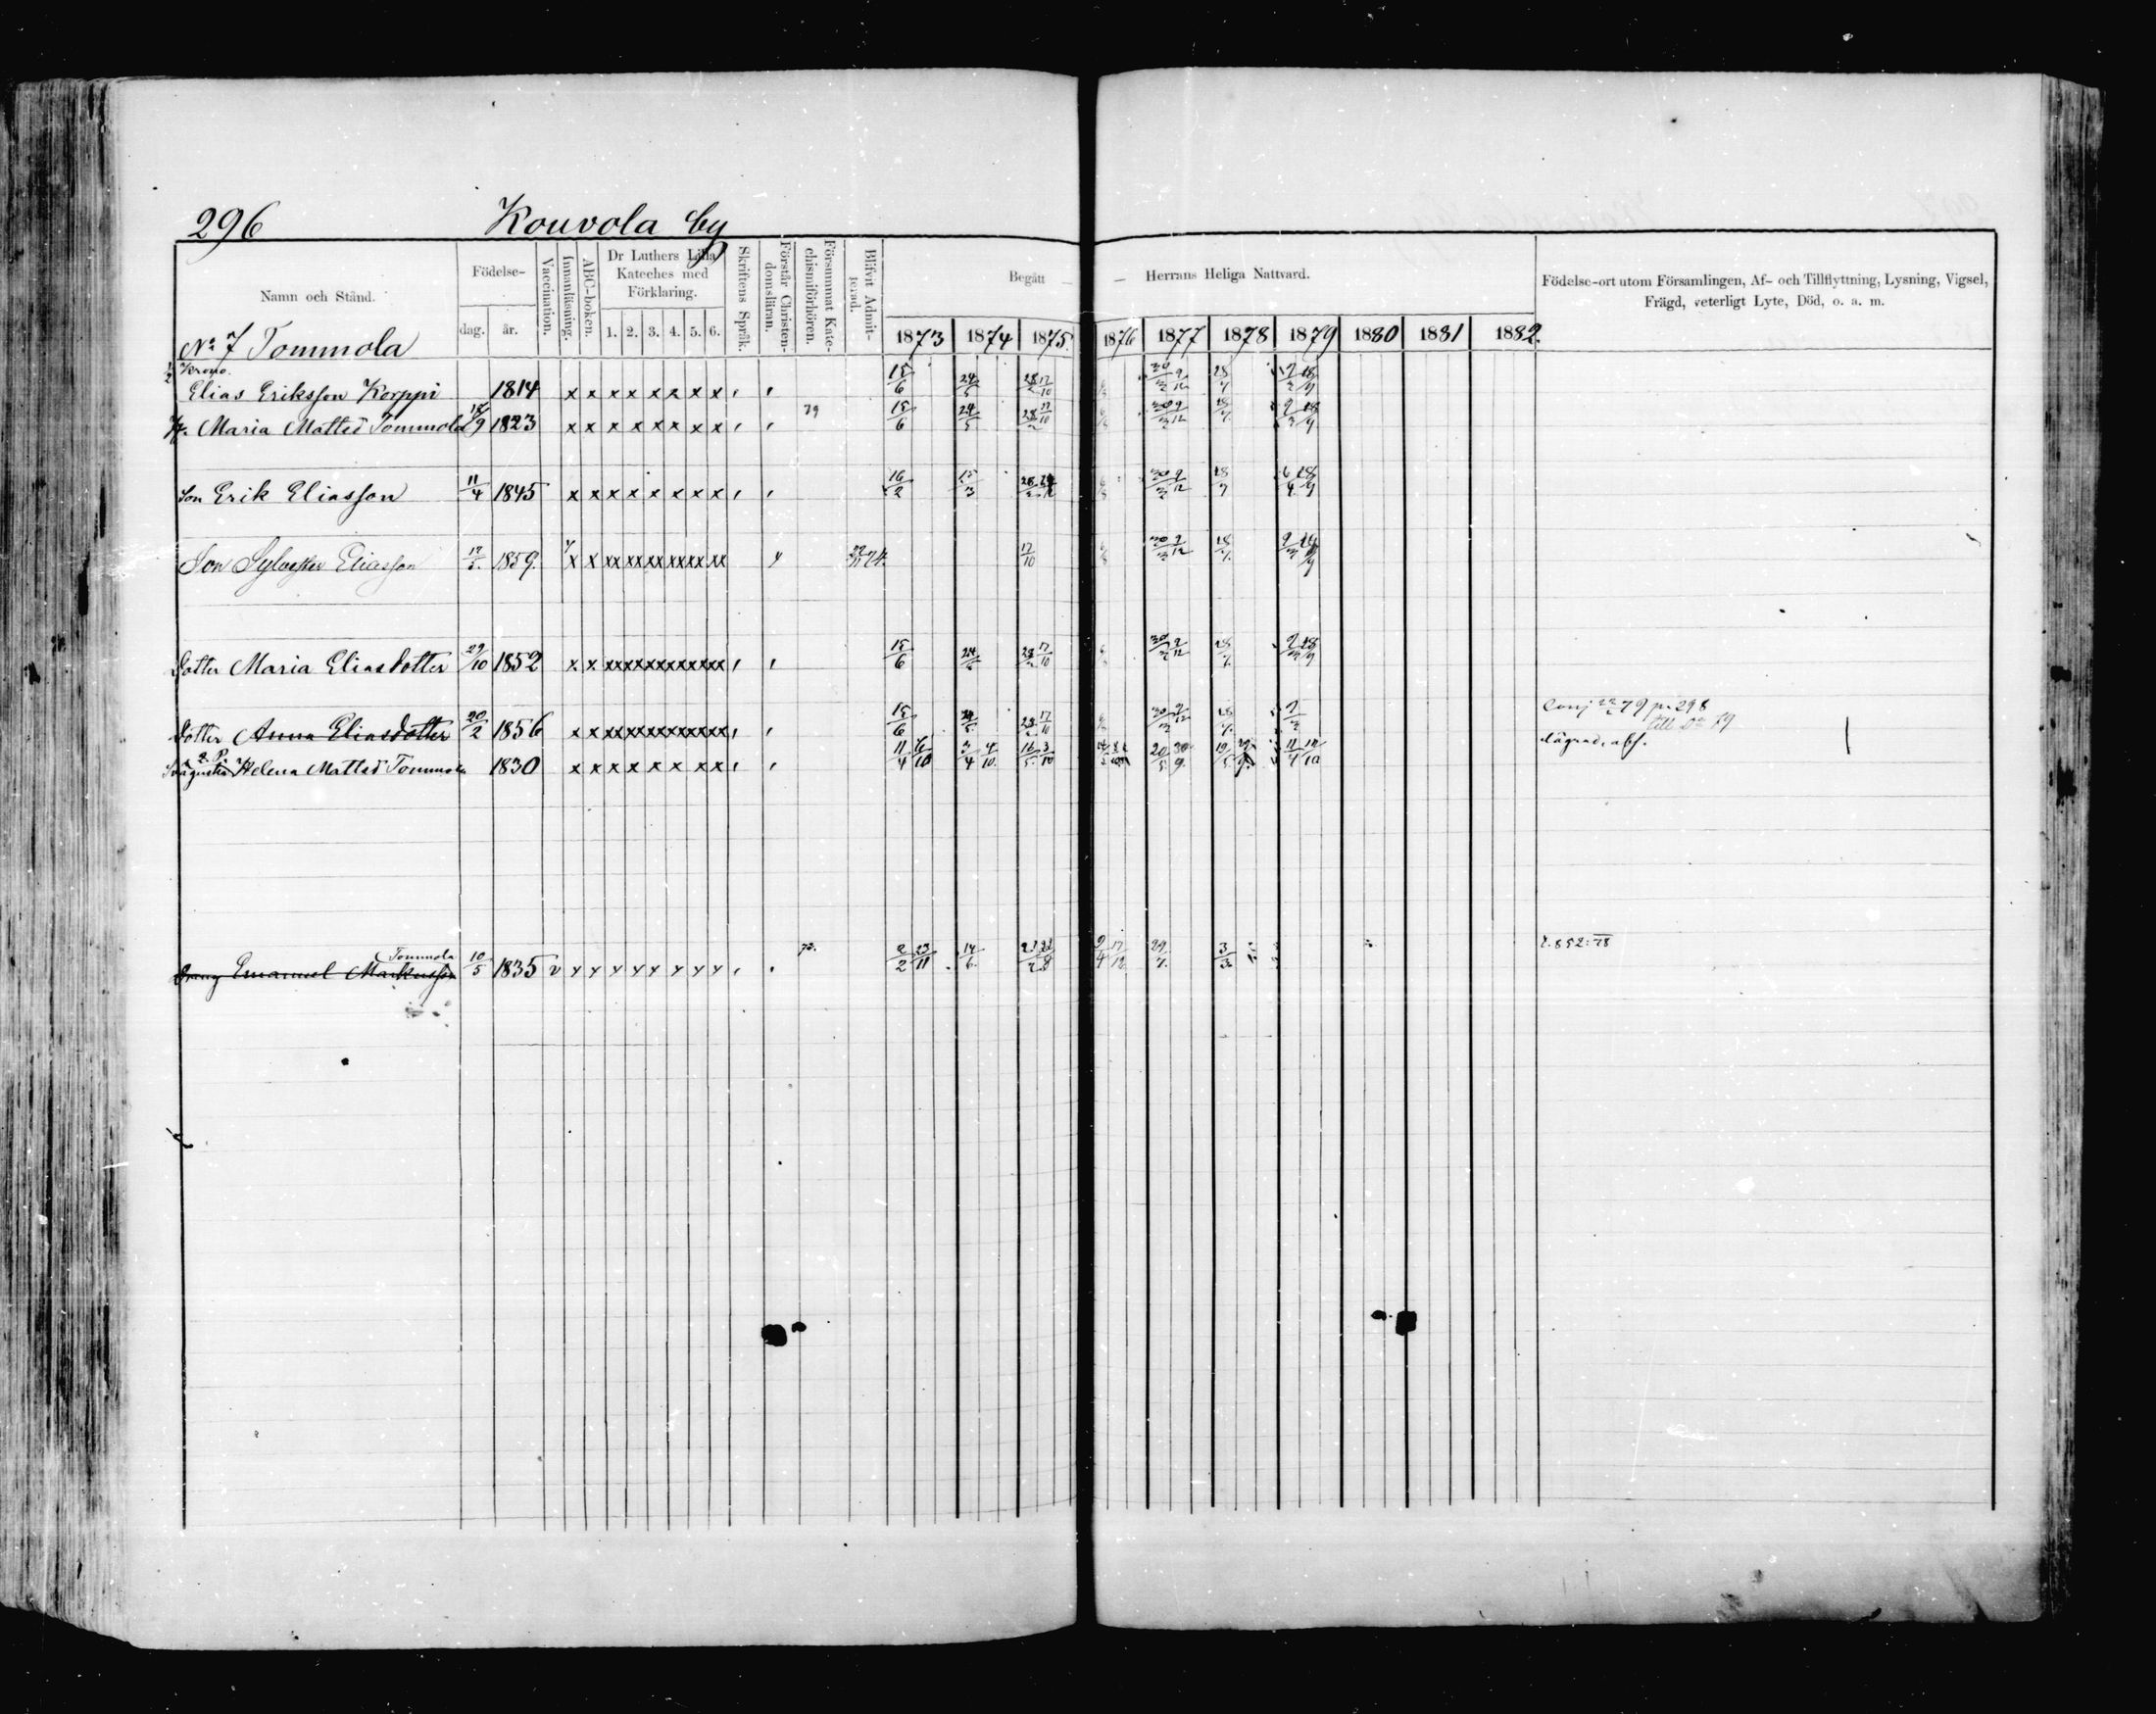 296 Kouvola by
Namn och Stånd.
Födelse-
dag. år.
Vaccination.
Innanläsning.
ABC-boken.
Dr Luthers Lilla Kateches med Förklaring.
1. 2. 3. 4. 5. 6.
Skriftens Språk.
Förstår Christendomsläran.
Försummat Katechismiförhören.
Blifvit Admitterad.
Begått — — Herrans Heliga Nattvard.
1873 1874 1875. 1876 1877 1878 1879 1880 1881 1882.
Födelse-ort utom Församlingen, Af- och Tillflyttning, Lysning, Vigsel,
Frägd, veterligt Lyte, Död, o. a. m.
No 7 Tommola
1/2 Krono.
Elias Eriksson Korppi 1814 x x x x x x x x 15/6 24/5 28/2 17/10 30/3 9/12 18/7 9/3 18/9
H. Maria Mattsd Tommola 18/9 1823 x x x x x x x x 79 15/6 24/5 28/2 17/10 30/3 9/12 18/7 9/3 18/9
Son Erik Eliasson 11/4 1845 x x x x x x x x 16/2 15/3 30/3 9/12 18/7 6/4 18/9
Son Sylvester Eliasson 1859. x x xx xx xx xx xx xx 74. 17/10 30/3 9/12 18/7 9/3
Dotter Maria Eliasdotter 29/10 1852 x x xx xx xx xx xx xx 15/6 24/5 28/2 17/10 30/3 9/12 18/7 9/3 18/9
Dotter Anna Eliasdotter 20/2 1856 x x xx xx xx xx xx xx 15/6 24/5 28/2 17/10 30/3 9/12 18/7 9/3 Conj 79 p. 298
till 79
Helena Mattsd Tommola 1830 x x x x x x x x 11/4 3/4 4/10. 16/5 3/10 20/5 30/9. 19/5 11/4 12/10 lägrad, abs.
Tommola
Dräng Emanuel Markusson 10/5 1835 v x x x x x x x x 73. 2/2 23/11 14/6. 9/4 17/12 29/7. 3/3